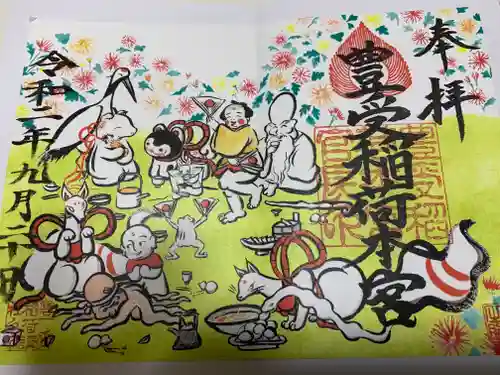 奉拝
豊受稲荷本宮
令和二年九月二十日